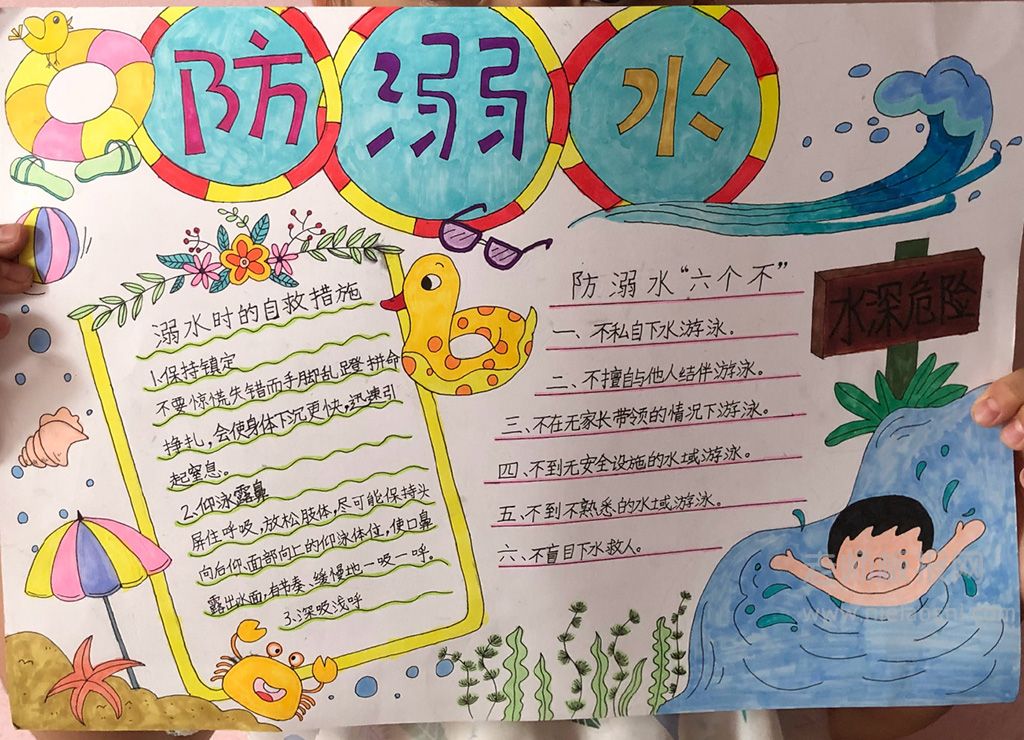 防溺水
溺水时的自救措施
1.保持镇定
不要惊慌失错而手脚乱蹬拼命
挣扎，会使身体下沉更快，迅速引
起窒息。
2.仰泳露鼻
屏住呼吸，放松肢体，尽可能保持头
向后仰、面部向上的仰泳体位，使口鼻
露出水面，有节奏、缓慢地一吸一呼。
3.深吸浅呼
防溺水“六个不”
一、不私自下水游泳。
二、不擅自与他人结伴游泳。
三、不在无家长带领的情况下游泳。
四、不到无安全设施的水域游泳。
五、不到不熟悉的水域游泳。
六、不盲目下水救人。
水深危险